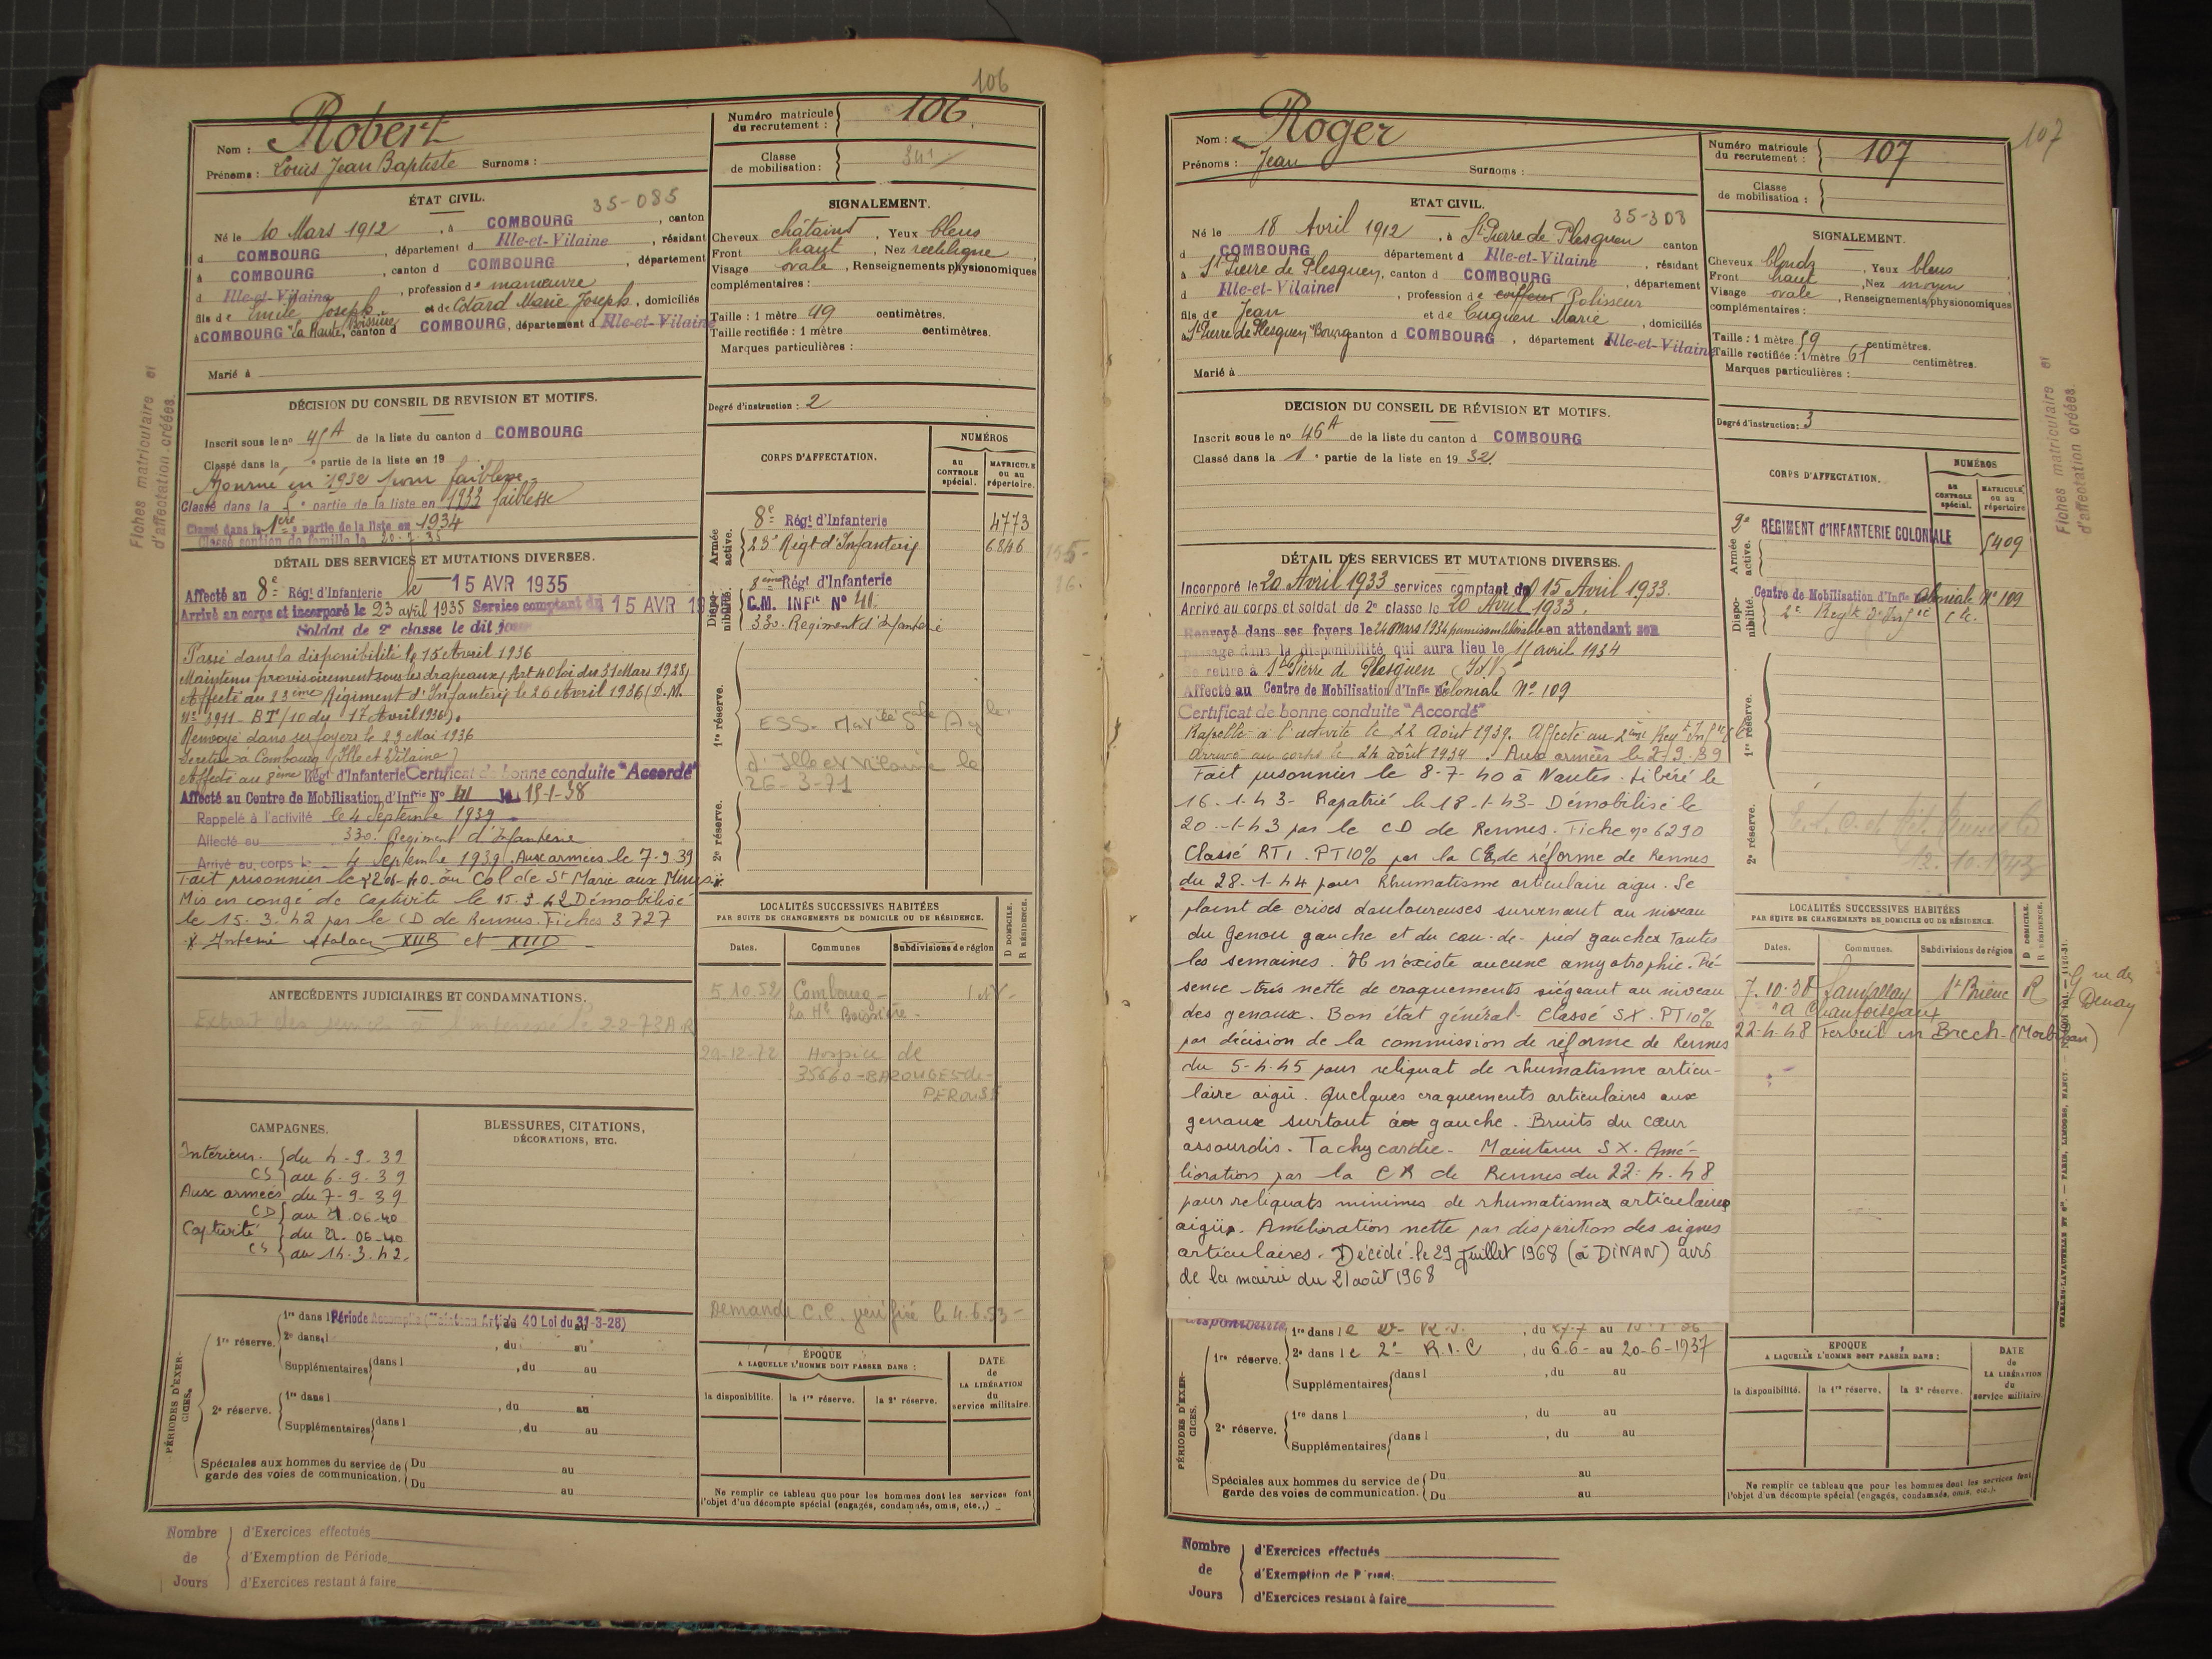 106
Nom : Robert
Prénoms : Louis Jean Baptiste Surnoms :
Numéro matricule du recrutement : 106
Classe de mobilisation :
ÉTAT CIVIL.
35-085
Né le 10 Mars 1912, à COMBOURG, canton
d COMBOURG, département d Ille-et-Vilaine, résidant
à COMBOURG, canton d COMBOURG, département
d Ille-et-Vilaine, profession de manœuvre
fils de Emile Joseph et de Cotard Marie Joseph, domiciliés
à COMBOURG "La Haute Boissière, canton d COMBOURG, département d Ille-et-Vilaine
Marié à
SIGNALEMENT.
Cheveux châtains, Yeux bleus
Front haut, Nez rectiligne
Visage ovale, Renseignements physionomiques
complémentaires :
Taille : 1 mètre 49 centimètres.
Taille rectifiée : 1 mètre centimètres.
Marques particulières :
Degré d'instruction : 2
Fiches matriculaire et
d'affectation créées.
DÉCISION DU CONSEIL DE REVISION ET MOTIFS.
Inscrit sous le nº 45 A de la liste du canton d COMBOURG
Classé dans la e partie de la liste en 19
Ajourné en 1932 pour faiblesse
Classé dans la 5e partie de la liste en 1933 faiblesse
Classé dans la 1ère partie de la liste en 1934
Classé soutien de famille le
DÉTAIL DES SERVICES ET MUTATIONS DIVERSES.
Affecté au 8e Régt d'Infanterie le 15 AVR 1935
Arrivé au corps et incorporé le 23 avril 1935 Service comptant du 15 AVR 1935
Soldat de 2e classe le dit jour
Passé dans la disponibilité le 15 Avril 1936
Maintenu provisoirement sous les drapeaux (Art 40 loi du 31 Mars 1928)
Affecté au 23ème Régiment d'Infanterie le 26 Avril 1936 (D.M.
Nº 3911-BT/10 du 17 Avril 1936).
Renvoyé dans ses foyers le 29 Mai 1936
Se retire à Combourg (Ille et Vilaine)
Affecté au 8ème Régt d'Infanterie Certificat de bonne conduite "Accordé"
Affecté au Centre de Mobilisation d'Infrie Nº 41 le 15-1-38
Rappelé à l'activité le 4 Septembre 1939
Affecté au 330. Régiment d'Infanterie
Arrivé au corps le 4 Septembre 1939. Aux armées le 7-9-39
Fait prisonnier le 22 06-40. au Col de St Marie aux Mines x.
Mis en congé de Captivité le 15-3-42 Démobilisé
le 15.3.42 par le CD de Rennes. Fiches 3727
x Interné Stalags XIIB et XIID
CORPS D'AFFECTATION.
NUMÉROS
au CONTROLE spécial.
MATRICULE ou au répertoire.
Armée active.
8e Régt d'Infanterie 4773
23e Régt d'Infanterie 6846
Disponibilité.
8ème Régt d'Infanterie
C.M. INFie Nº 41.
330. Régiment d'Infanterie
1re réserve.
d'Ille et Vilaine le
26-3-71
2e réserve.
ANTÉCÉDENTS JUDICIAIRES ET CONDAMNATIONS.
CAMPAGNES.
Intérieur. du 4-9-39
CS au 6-9-39
Aux armées du 7-9-39
CD au 21.06-40
Captivité du 22.06-40
CS au 14.3.42.
BLESSURES, CITATIONS,
DÉCORATIONS, ETC.
LOCALITÉS SUCCESSIVES HABITÉES
PAR SUITE DE CHANGEMENTS DE DOMICILE OU DE RÉSIDENCE.
Dates. Communes Subdivisions de région D DOMICILE. R RÉSIDENCE.
5.10.52 Combourg - I et V -
La Hte Boissière -
29-12-72 Hospice de
35660 - BAZOUGES-de-
PEROUSE
Demande C.C. vérifiée le 4.6.53 -
PÉRIODES D'EXERCICES.
1re réserve.
1re dans l Période Accomplie (Maintenu Article 40 Loi du 31-3-28)
2e dans l , du au
Supplémentaires dans l , du au
2e réserve.
1re dans l , du au
Supplémentaires dans l , du au
Spéciales aux hommes du service de garde des voies de communication. Du au
Du au
ÉPOQUE
A LAQUELLE L'HOMME DOIT PASSER DANS :
la disponibilité. la 1re réserve. la 2e réserve.
DATE de LA LIBÉRATION du service militaire.
Ne remplir ce tableau que pour les hommes dont les services font
l'objet d'un décompte spécial (engagés, condamnés, omis, etc.,)
Nombre de Jours
d'Exercices effectués
d'Exemption de Période
d'Exercices restant à faire
107
Nom : Roger
Prénoms : Jean Surnoms :
Numéro matricule du recrutement : 107
Classe de mobilisation :
ETAT CIVIL.
35-308
Né le 18 Avril 1912, à St Pierre de Plesguen canton
d COMBOURG département d Ille-et-Vilaine, résidant
à St Pierre de Plesguen, canton d COMBOURG, département
d Ille-et-Vilaine, profession de coiffeur Polisseur
fils de Jean et de Cuguen Marie, domiciliés
à St Pierre de Plesguen, "Bourg canton d COMBOURG, département d Ille-et-Vilaine
Marié à
SIGNALEMENT.
Cheveux blonds, Yeux bleus
Front haut, Nez moyen
Visage ovale, Renseignements physionomiques
complémentaires :
Taille : 1 mètre 59 centimètres.
Taille rectifiée : 1 mètre 61 centimètres.
Marques particulières :
Degré d'instruction : 3
Fiches matriculaire et
d'affectation créées.
DECISION DU CONSEIL DE RÉVISION ET MOTIFS.
Inscrit sous le nº 46 A de la liste du canton d COMBOURG
Classé dans la 1e partie de la liste en 19 32.
DÉTAIL DES SERVICES ET MUTATIONS DIVERSES.
Incorporé le 20 Avril 1933 services comptant du 15 Avril 1933.
Arrivé au corps et soldat de 2e classe le 20 Avril 1933.
Renvoyé dans ses foyers le 24 Mars 1934 permission libérable en attendant son
passage dans la disponibilité qui aura lieu le 15 avril 1934
Se retire à St Pierre de Plesguen (I et V)
Affecté au Centre de Mobilisation d'Infie Coloniale Nº 109
Certificat de bonne conduite "Accordé"
Rapellé à l'activité le 22 Août 1939. Affecté au 2ème Régt Infie Cle
Arrivé au corps le 24 août 1939. Aux armées le 2 9.39
Fait prisonnier le 8-7-40 à Nantes. Libéré le
16-1-43- Rapatrié le 18-1-43- Démobilisé le
20-1-43 par le CD de Rennes. Fiche nº 6290
Classé RT1. PT10% par la CR de réforme de Rennes
du 28.1-44 pour Rhumatisme articulaire aigu. Se
plaint de crises douloureuses survenant au niveau
du Genou gauche et du cou-de-pied gauche toutes
les semaines. Il n'existe aucune amyotrophie. Pré-
sence très nette de craquements siégeant au niveau
des genoux. Bon état général. Classé SX. PT10%
par décision de la commission de réforme de Rennes
du 5-4-45 pour reliquat de rhumatisme articu-
laire aigü. Quelques craquements articulaires aux
genoux surtout à gauche. Bruits du cœur
assourdis. Tachycardie. Maintenu SX. Amé-
lioration par la CR de Rennes du 22-4-48
pour reliquats minimes de rhumatismes articulaires
aigüs. Amélioration nette par disparition des signes
articulaires. Décédé le 29 Juillet 1968 (à DINAN) avis
de la mairie du 21 août 1968
CORPS D'AFFECTATION.
NUMÉROS
au CONTROLE spécial.
MATRICULE ou au répertoire
Armée active.
2e REGIMENT d'INFANTERIE COLONIALE 5409
Disponibilité.
Centre de Mobilisation d'Infie Coloniale Nº 109
2e Régt d'Infie Cle.
1re réserve.
2e réserve.
12.10.1943
LOCALITÉS SUCCESSIVES HABITÉES
PAR SUITE DE CHANGEMENTS DE DOMICILE OU DE RÉSIDENCE.
Dates. Communes. Subdivisions de région D DOMICILE. R RÉSIDENCE.
7.10-38 Lanvallay St Brieuc R
22-4-48 Kerbeil en Brech - (Morbihan)
CHARLES-LAVAUZELLE ET Cie. — PARIS, LIMOGES, NANCY.
PÉRIODES D'EXERCICES.
disponibilité
1re réserve.
1re dans le 2e R.I. , du 27-7 au
2e dans le 2e R.I.C , du 6.6- au 20-6-1937
Supplémentaires dans l , du au
2e réserve.
1re dans l , du au
Supplémentaires dans l , du au
Spéciales aux hommes du service de garde des voies de communication. Du au
Du au
EPOQUE
A LAQUELLE L'HOMME DOIT PASSER DANS :
la disponibilité. la 1re réserve. la 2e réserve.
DATE de LA LIBÉRATION du service militaire.
Ne remplir ce tableau que pour les hommes dont les services font
l'objet d'un décompte spécial (engagés, condamnés, omis, etc.).
Nombre de Jours
d'Exercices effectués
d'Exemption de Périod:
d'Exercices restant à faire